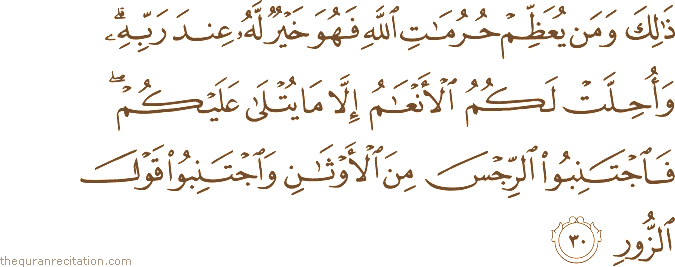 ذَٰلِكَ وَمَن يُعَظِّمْ حُرُمَـٰتِ ٱللَّهِ فَهُوَ خَيْرٌ لَّهُۥ عِندَ رَبِّهِۦ ۗ
وَأُحِلَّتْ لَكُمُ ٱلْأَنْعَـٰمُ إِلَّا مَا يُتْلَىٰ عَلَيْكُمْ ۖ
فَٱجْتَنِبُوا۟ ٱلرِّجْسَ مِنَ ٱلْأَوْثَـٰنِ وَٱجْتَنِبُوا۟ قَوْلَ
ٱلزُّورِ ٣٠
thequranrecitation.com